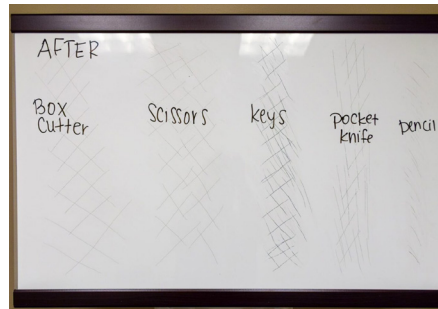 AFTER
Box
Cutter
Scissors
keys
pocket
knife
pencil